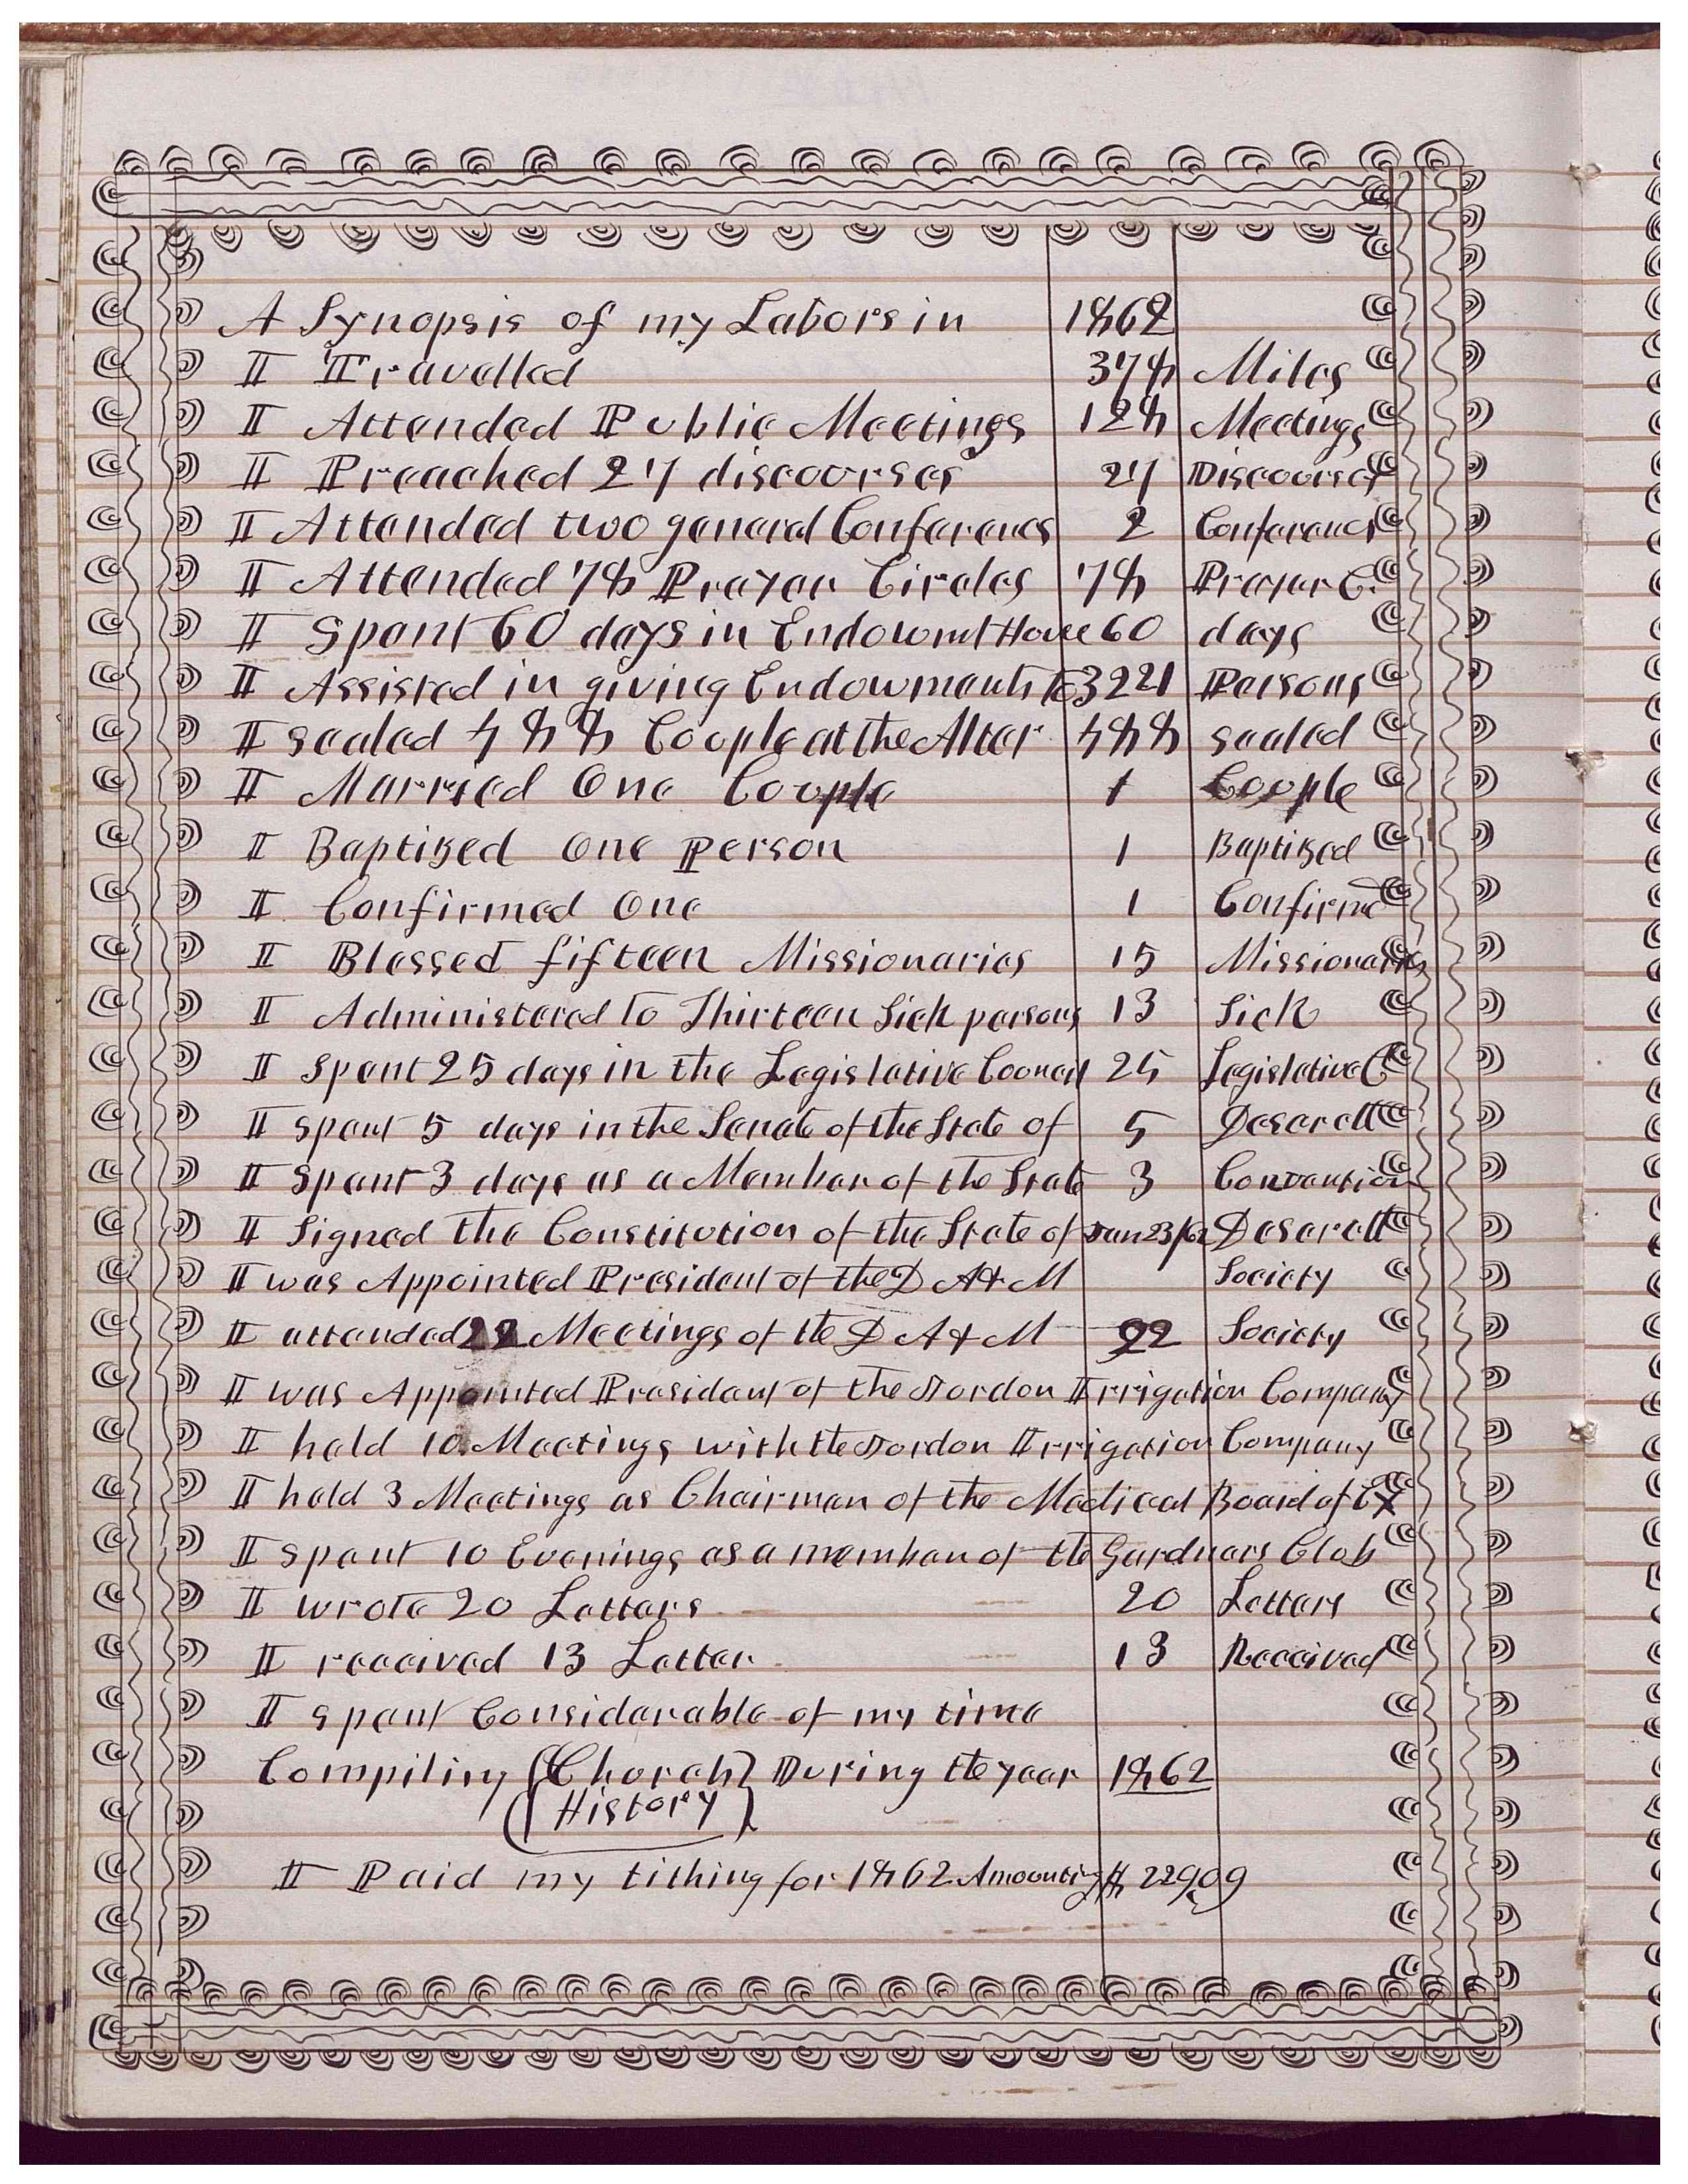 A Synopsis of my Labors in 1862
I Travelled 378 Miles
I Attended Public Meetings 128 Meetings
I Preached 27 discourses 27 Discourses
I Attended two general Conferences 2 Conferences
I Attended 78 Prayer Circles 78 Prayer C.
I Spent 60 days in Endowmet House 60 days
I Assisted in giving Endowments to 3221 Persons
I sealed 588 Couple at the Alter 588 sealed
I Married One Couple 1 Couple
I Baptized One Person 1 Baptized
I Confirmed One 1 Confirmd
I Blessed fifteen Missionaries 15 Missionaries
I Administered to Thirteen Sick persons 13 Sick
I spent 25 days in the Legislative Council 25 Legislative C
I spent 5 days in the Senate of the State of 5 Deserett
I spent 3 days as a Member of the State 3 Convention
I Signed the Constitution of the State of Jan 23/62 Deserett
I was Appointed President of the D A & M Society
I attended 22 Meetings of the D A & M 22 Society
I was Appointed President of the Jordon Irrigation Company
I held 10 Meetings with the Jordon Irrigation Company
I held 3 Meetings as Chairman of the Medical Board of Ex
I spent 10 Evenings as a member of the Gardners Club
I wrote 20 Letters 20 Letters
I received 13 Letter 13 Received
I spent Considerable of my time
Compiling (Church) During the year 1862
(History)
I Paid my tithing for 1862 Amounting $22909